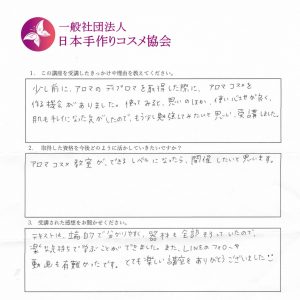 一般社団法人
日本手作りコスメ協会
1. この講座を受講したきっかけや理由を教えてください。
少し前に、アロマのディプロマを取得した際に、アロマコスメを
作る機会がありました。使ってみると、思いのほか、使い心地が良く、
肌もキレイになった気がしたので、もう少し勉強してみたいと思い、受講しました。
2. 取得した資格を今後どのように活かしていきたいですか？
アロマコスメ教室が、できるレベルになったら、開催したいと思います。
3. 受講された感想をお聞かせください。
テキストは、端的で分かりやすく、器材も全部そろっていたので、
楽な気持ちで学ぶことができました。また、LINEのフォローや
動画も有難かったです。とても楽しい講座をありがとうございました